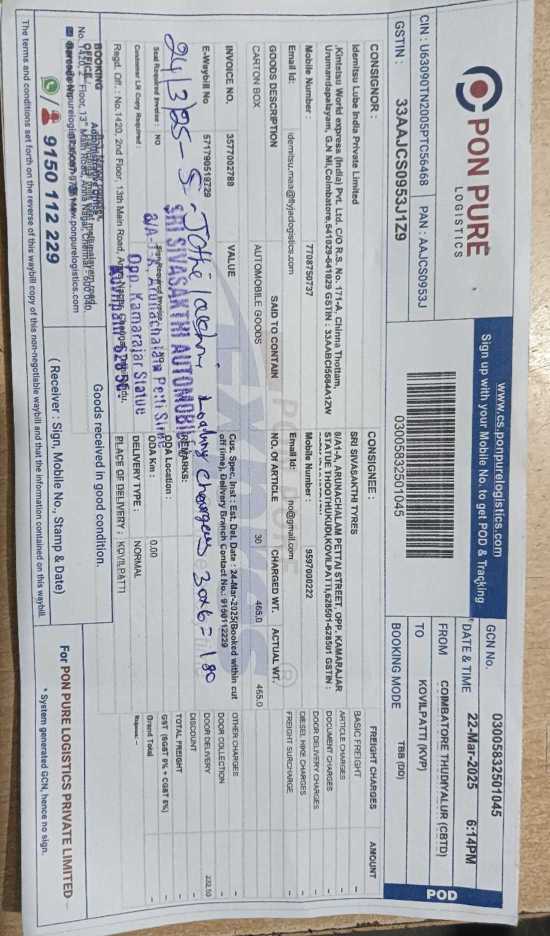 PON PURE
LOGISTICS
www.cs.ponpurelogistics.com
Sign up with your Mobile No. to get POD & Tracking
CIN : U63090TN2005PTC56468 PAN : AAJCS0953J
GSTIN : 33AAJCS0953J1Z9
03005832501045
GCN No. 03005832501045
DATE & TIME 22-Mar-2025 6:14PM
FROM COIMBATORE THUDIYALUR (CBTD)
TO KOVILPATTI (KVP)
BOOKING MODE TBB (DD)
POD
CONSIGNOR :
Idemitsu Lube India Private Limited
,Kintetsu World express (India) Pvt. Ltd, C/O R.S. No. 171-A, Chinna Thottam,
Urumandapalayam, G.N Ml,Coimbatore,641029-641029 GSTIN : 33AABCI5684A1ZW
Mobile Number : 7708750737
Email Id: idemitsu.maa@flyjaclogistics.com
CONSIGNEE :
SRI SIVASAKTHI TYRES
8/A1-A, ARUNACHALAM PETTAI STREET, OPP. KAMARAJAR
STATUE THOOTHUKUDI,KOVILPATTI,628501-628501 GSTIN :
Mobile Number : 9597000222
Email Id: no@gmail.com
FREIGHT CHARGES AMOUNT
BASIC FREIGHT -
ARTICLE CHARGES -
DOCUMENT CHARGES -
DOOR DELIVERY CHARGES -
DIESEL HIKE CHARGES -
FREIGHT SURCHARGE -
OTHER CHARGES -
DOOR COLLECTION -
DOOR DELIVERY 232.50
DISCOUNT -
TOTAL FREIGHT -
GST (SGST 0% + CGST 0%) -
Grand Total -
Rupees: --
GOODS DESCRIPTION SAID TO CONTAIN NO. OF ARTICLE CHARGED WT. ACTUAL WT.
CARTON BOX AUTOMOBILE GOODS 30 465.0 465.0
INVOICE NO. VALUE
3577002788
E-Waybill No 571790519729
Cus. Spec. Inst : Est. Del. Date : 24-Mar-2025(Booked within cut
off time), Delivery Branch Contact No.: 9150112229
24/3/25 - S. Loading Charges 30x6=180
REMARKS:
Seal Required Invoice : NO
Customer LR Copy Required :
SRI SIVASAKTHI AUTOMOBILE
8/A-1-A, Arunachalam Pettai Street
Opp. Kamarajar Statue
ODA Location :
ODA Km : 0.00
DELIVERY TYPE : NORMAL
PLACE OF DELIVERY : KOVILPATTI
Regd. Off. : No.1420, 2nd Floor, 13th Main Road,
BOOKING
OFFICE
Goods received in good condition.
9150 112 229
( Receiver : Sign, Mobile No., Stamp & Date)
For PON PURE LOGISTICS PRIVATE LIMITED
* System generated GCN, hence no sign.
The terms and conditions set forth on the reverse of this waybill copy of this non-negotiable waybill and that the information contained on this waybill.